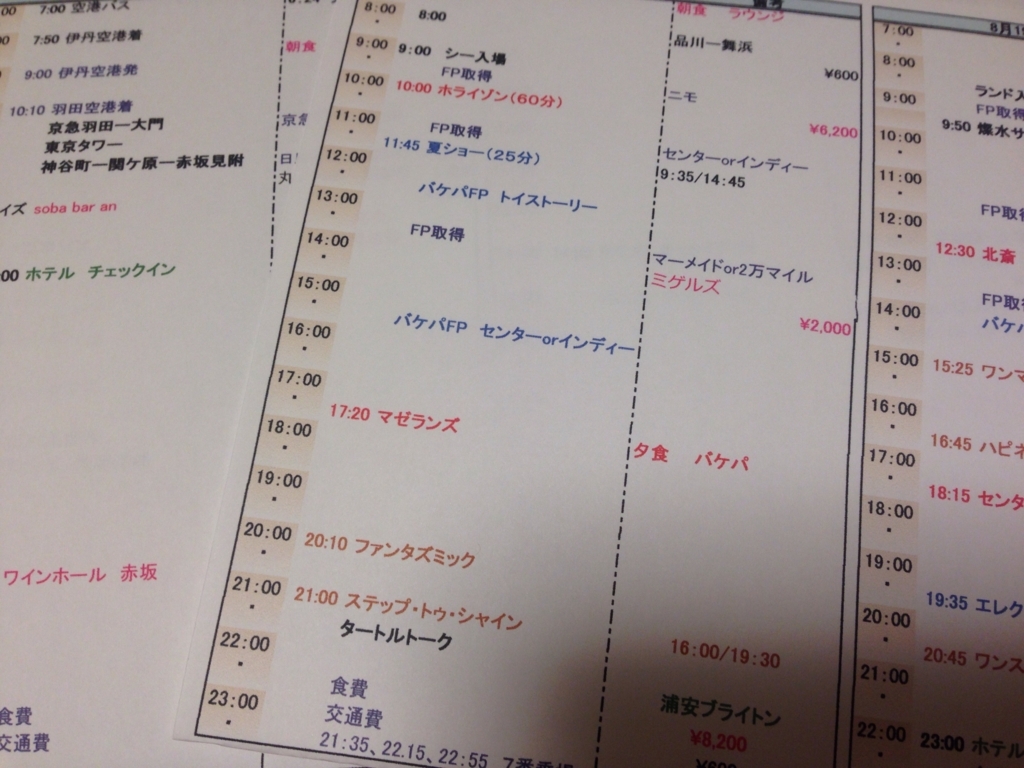 7:00 空港バス
7:50 伊丹空港着
9:00 伊丹空港発
10:10 羽田空港着
京急羽田ー大門
東京タワー
神谷町ー関ケ原ー赤坂見附
イズ soba bar an
00 ホテル チェックイン
ワインホール 赤坂
食費
交通費
朝食
京急
日
丸
8:00 8:00
朝食 ラウンジ
品川ー舞浜
9:00 9:00 シー入場
¥600
FP取得
10:00 10:00 ホライゾン(60分)
ニモ
11:00
¥6,200
FP取得
12:00 11:45 夏ショー(25分)
センターorインディー
9:35/14:45
13:00 バケパFP トイストーリー
14:00 FP取得
マーメイドor2万マイル
15:00
ミゲルズ
¥2,000
16:00 バケパFP センターorインディー
17:00
17:20 マゼランズ
18:00
夕食 バケパ
19:00
20:00 20:10 ファンタズミック
21:00 21:00 ステップ・トゥ・シャイン
タートルトーク
22:00
16:00/19:30
食費
23:00 交通費
浦安ブライトン
¥8,200
21:35、22.15、22:55
7:00
8月1
8:00
ランド入
9:00
FP取得
9:50 燦水サ
10:00
11:00
FP取
12:00
12:30 北斎
13:00
FP取
14:00
バケパ
15:00
15:25 ワンマ
16:00
16:45 ハピネ
17:00
18:15 センタ
18:00
19:00
19:35 エレク
20:00
20:45 ワンス
21:00
22:00
23:00 ホテル